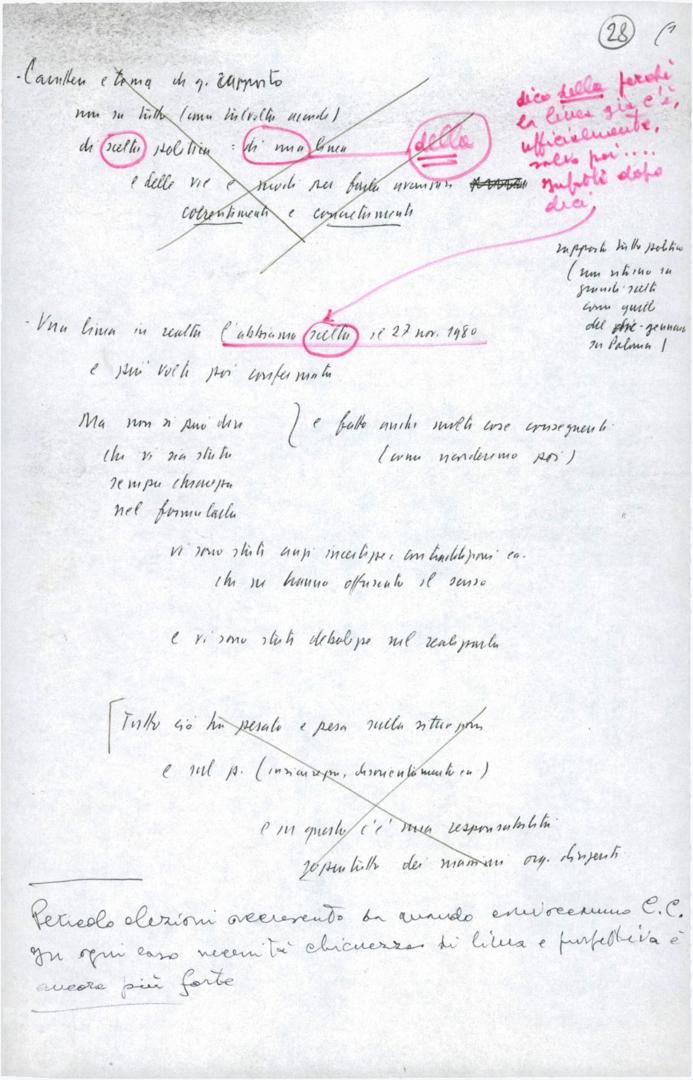 28
- Carattere e tema di q. rapporto
non su tutto (come talvolta accade)
di scelta politica = di una linea della
e delle vie e modi per farla avanzare
coerentemente e concretamente
dico della perché
la linea già c'è,
ufficialmente,
salvo poi....
dopo
dici.
rapporto tutto politico
(non ritorno su
grandi scelte
come quelle
del gennaio
su Polonia)
- Una linea in realtà l'abbiamo scelta il 27 nov. 1980
e più volte poi confermata
Ma non si può dire } e fatto anche molte cose conseguenti
che vi sia stata (come ricorderemo poi)
sempre chiarezza
nel formularla
vi sono stati anzi incertezze, contraddizioni ecc.
che ne hanno offuscato il senso
e vi sono state debolezze nel realizzarla
Tutto ciò ha pesato e pesa sulla situazione
e sul p. (incertezze, disorientamento ecc)
e in questo c'è una responsabilità
soprattutto dei massimi org. dirigenti
Pericolo elezioni accresciuto da quando convocammo C.C.
In ogni caso necessità chiarezza di linea e prospettiva è
ancora più forte